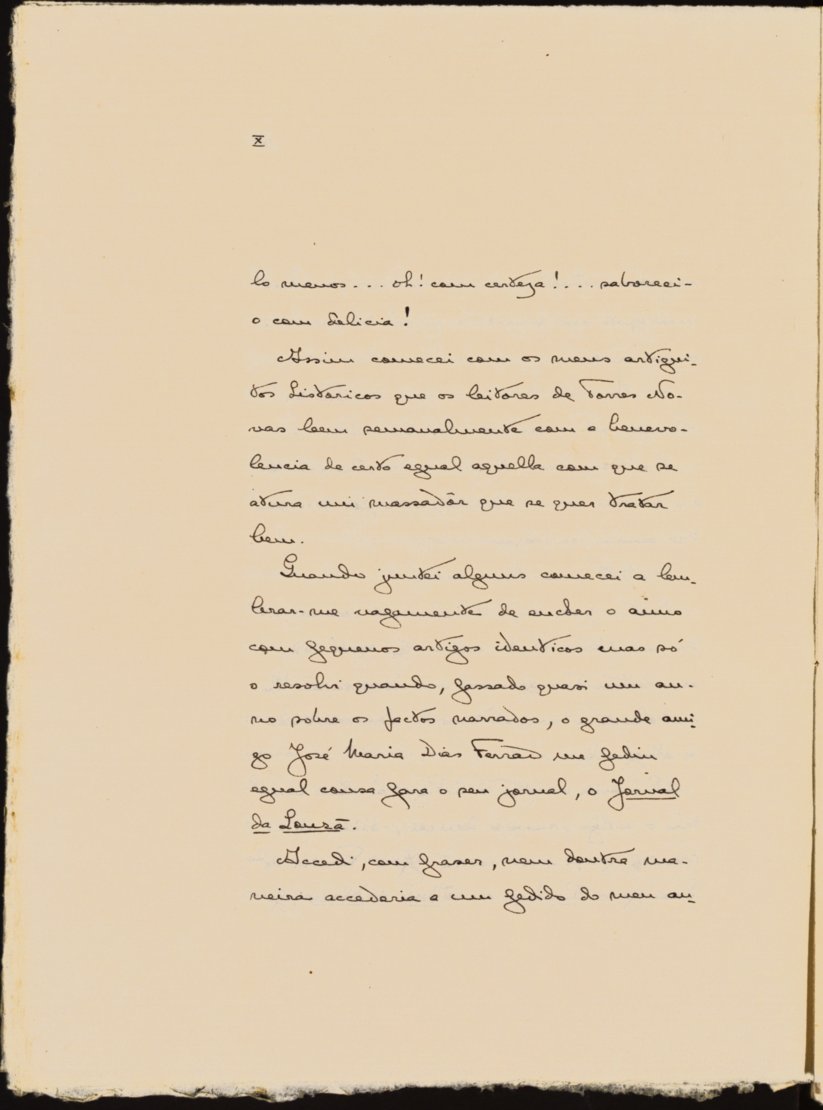 X
lo menos... oh! com certeza!... saboreei-
o com delicia!
Assim comecei com os meus artigui-
tos historicos que os leitores de Torres No-
vas leem semanalmente com a benevo-
lencia de certo egual aquella com que se
atura um massadôr que se quer tratar
bem.
Quando juntei alguns comecei a lem-
brar-me vagamente de encher o anno
com pequenos artigos identicos mas só
o resolvi quando, passado quasi um an-
no sobre os factos narrados, o grande ami-
go José Maria Dias Ferrão me pediu
egual cousa para o seu jornal, o Jornal
da Louzã.
Accedi, com praser, nem doutra ma-
neira accederia a um pedido do meu an-